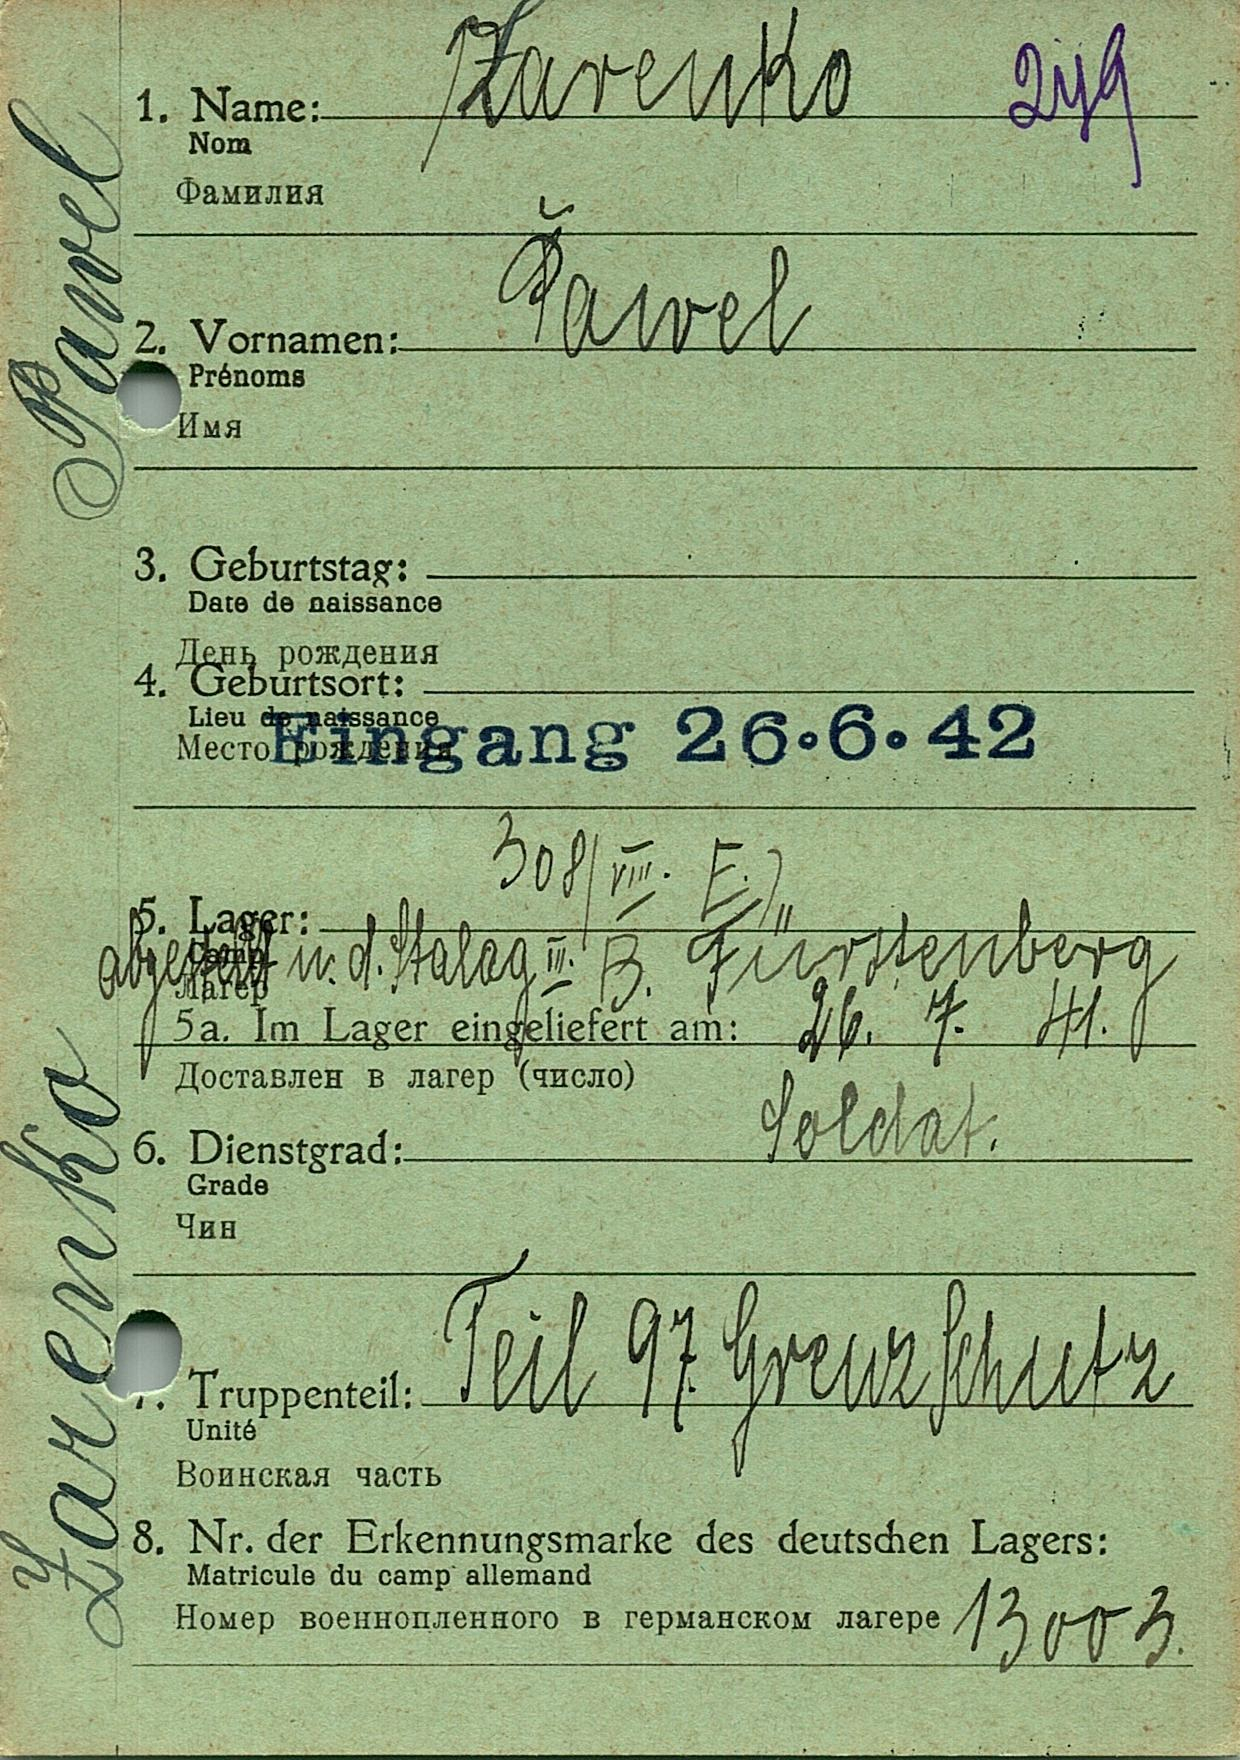 1. Name: Zarenko 249
Nom
Фамилия
2. Vornamen: Pawel
Prénoms
Имя
3. Geburtstag:
Date de naissance
День рождения
4. Geburtsort:
Lieu de naissance
Место рождения
Eingang 26.6.42
308/VIII. E.)
5. Lager:
Camp
Лагерь
abgestellt n. d. Stalag III. B. Fürstenberg
5a. Im Lager eingeliefert am: 26. 7. 41.
Доставлен в лагер (число)
6. Dienstgrad: Soldat.
Grade
Чин
7. Truppenteil: Teil 97. Grenzschutz
Unité
Воинская часть
8. Nr. der Erkennungsmarke des deutschen Lagers:
Matricule du camp allemand
Номер военнопленного в германском лагере 13003.
Zarenko Pawel